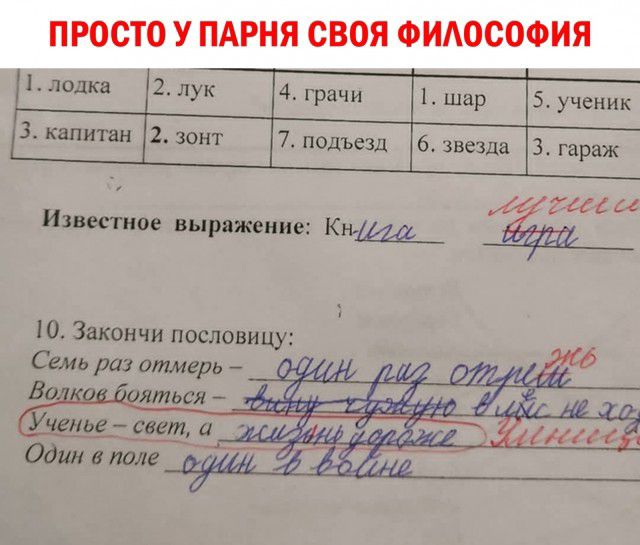 ПРОСТО У ПАРНЯ СВОЯ ФИЛОСОФИЯ
1. лодка 2. лук 4. грачи 1. шар 5. ученик
3. капитан 2. зонт 7. подъезд 6. звезда 3. гараж
лучш
Известное выражение: Книга игра
10. Закончи пословицу:
жь
Семь раз отмерь – один раз отреш
Волков бояться – в лес не хо
Ученье – свет, а жизнь дороже Умниц
Один в поле один в войне